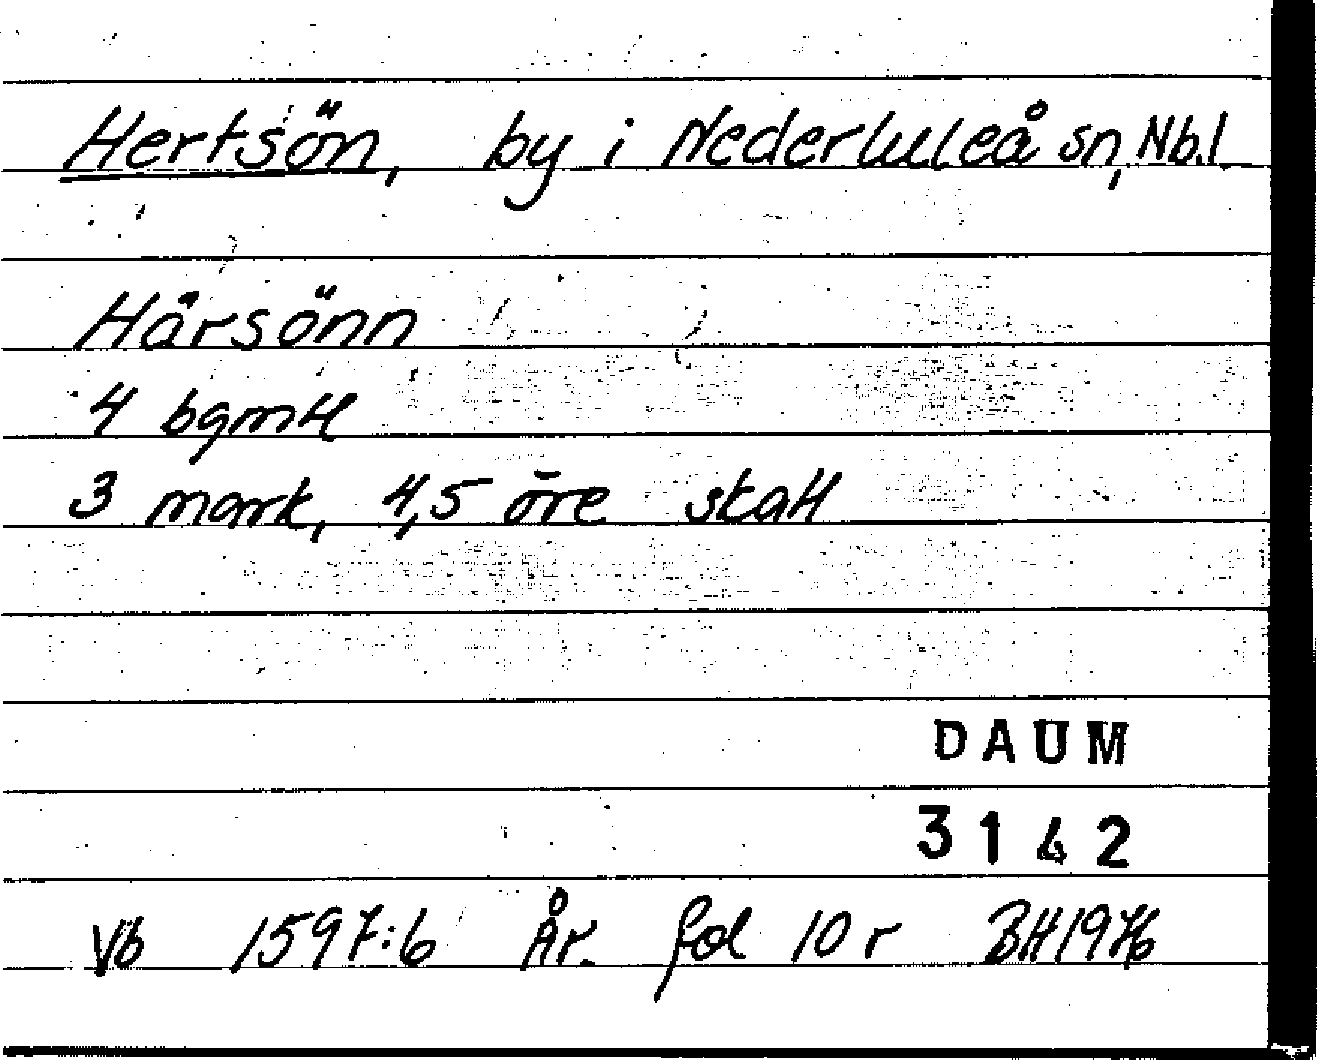 Hertsön, by i Nederluleå sn, Nb.l.
Hårsönn
4 bgmtl
3 mark, 4,5 öre skatt
DAUM
3142
Vb 1597:6 År. fol 10 r BH1976